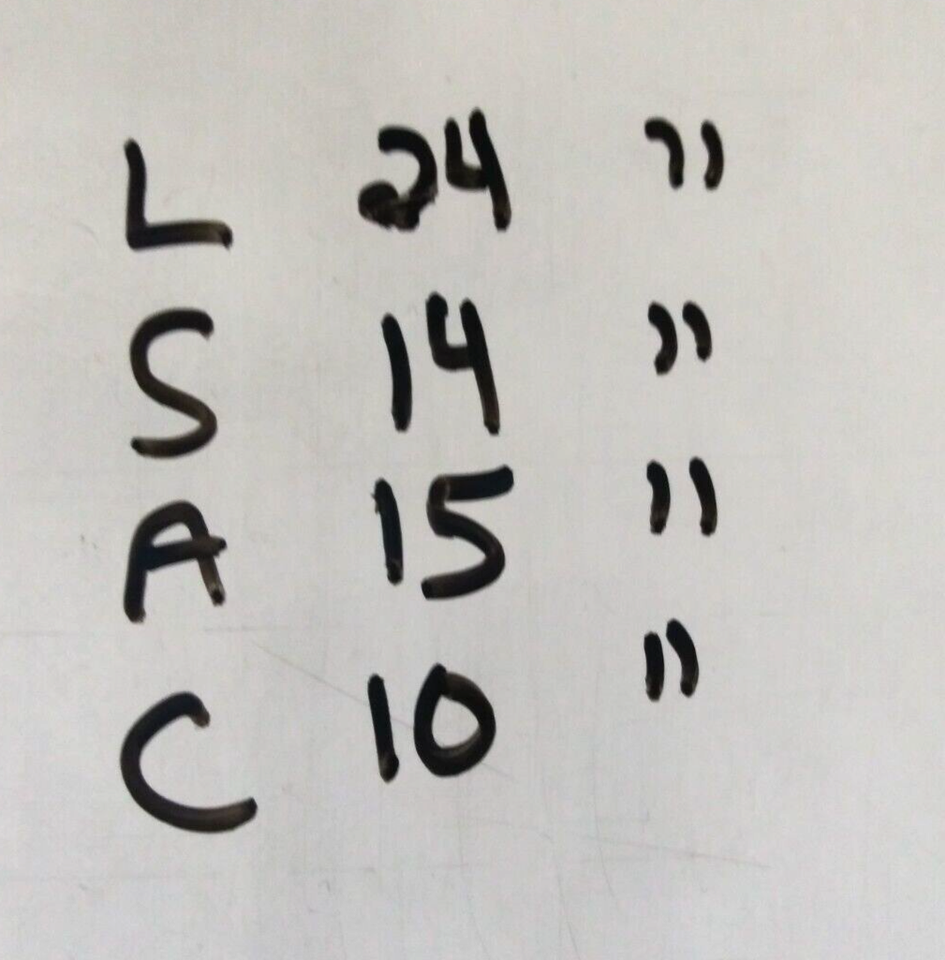 L 24 "
S 14 "
A 15 "
C 10 "